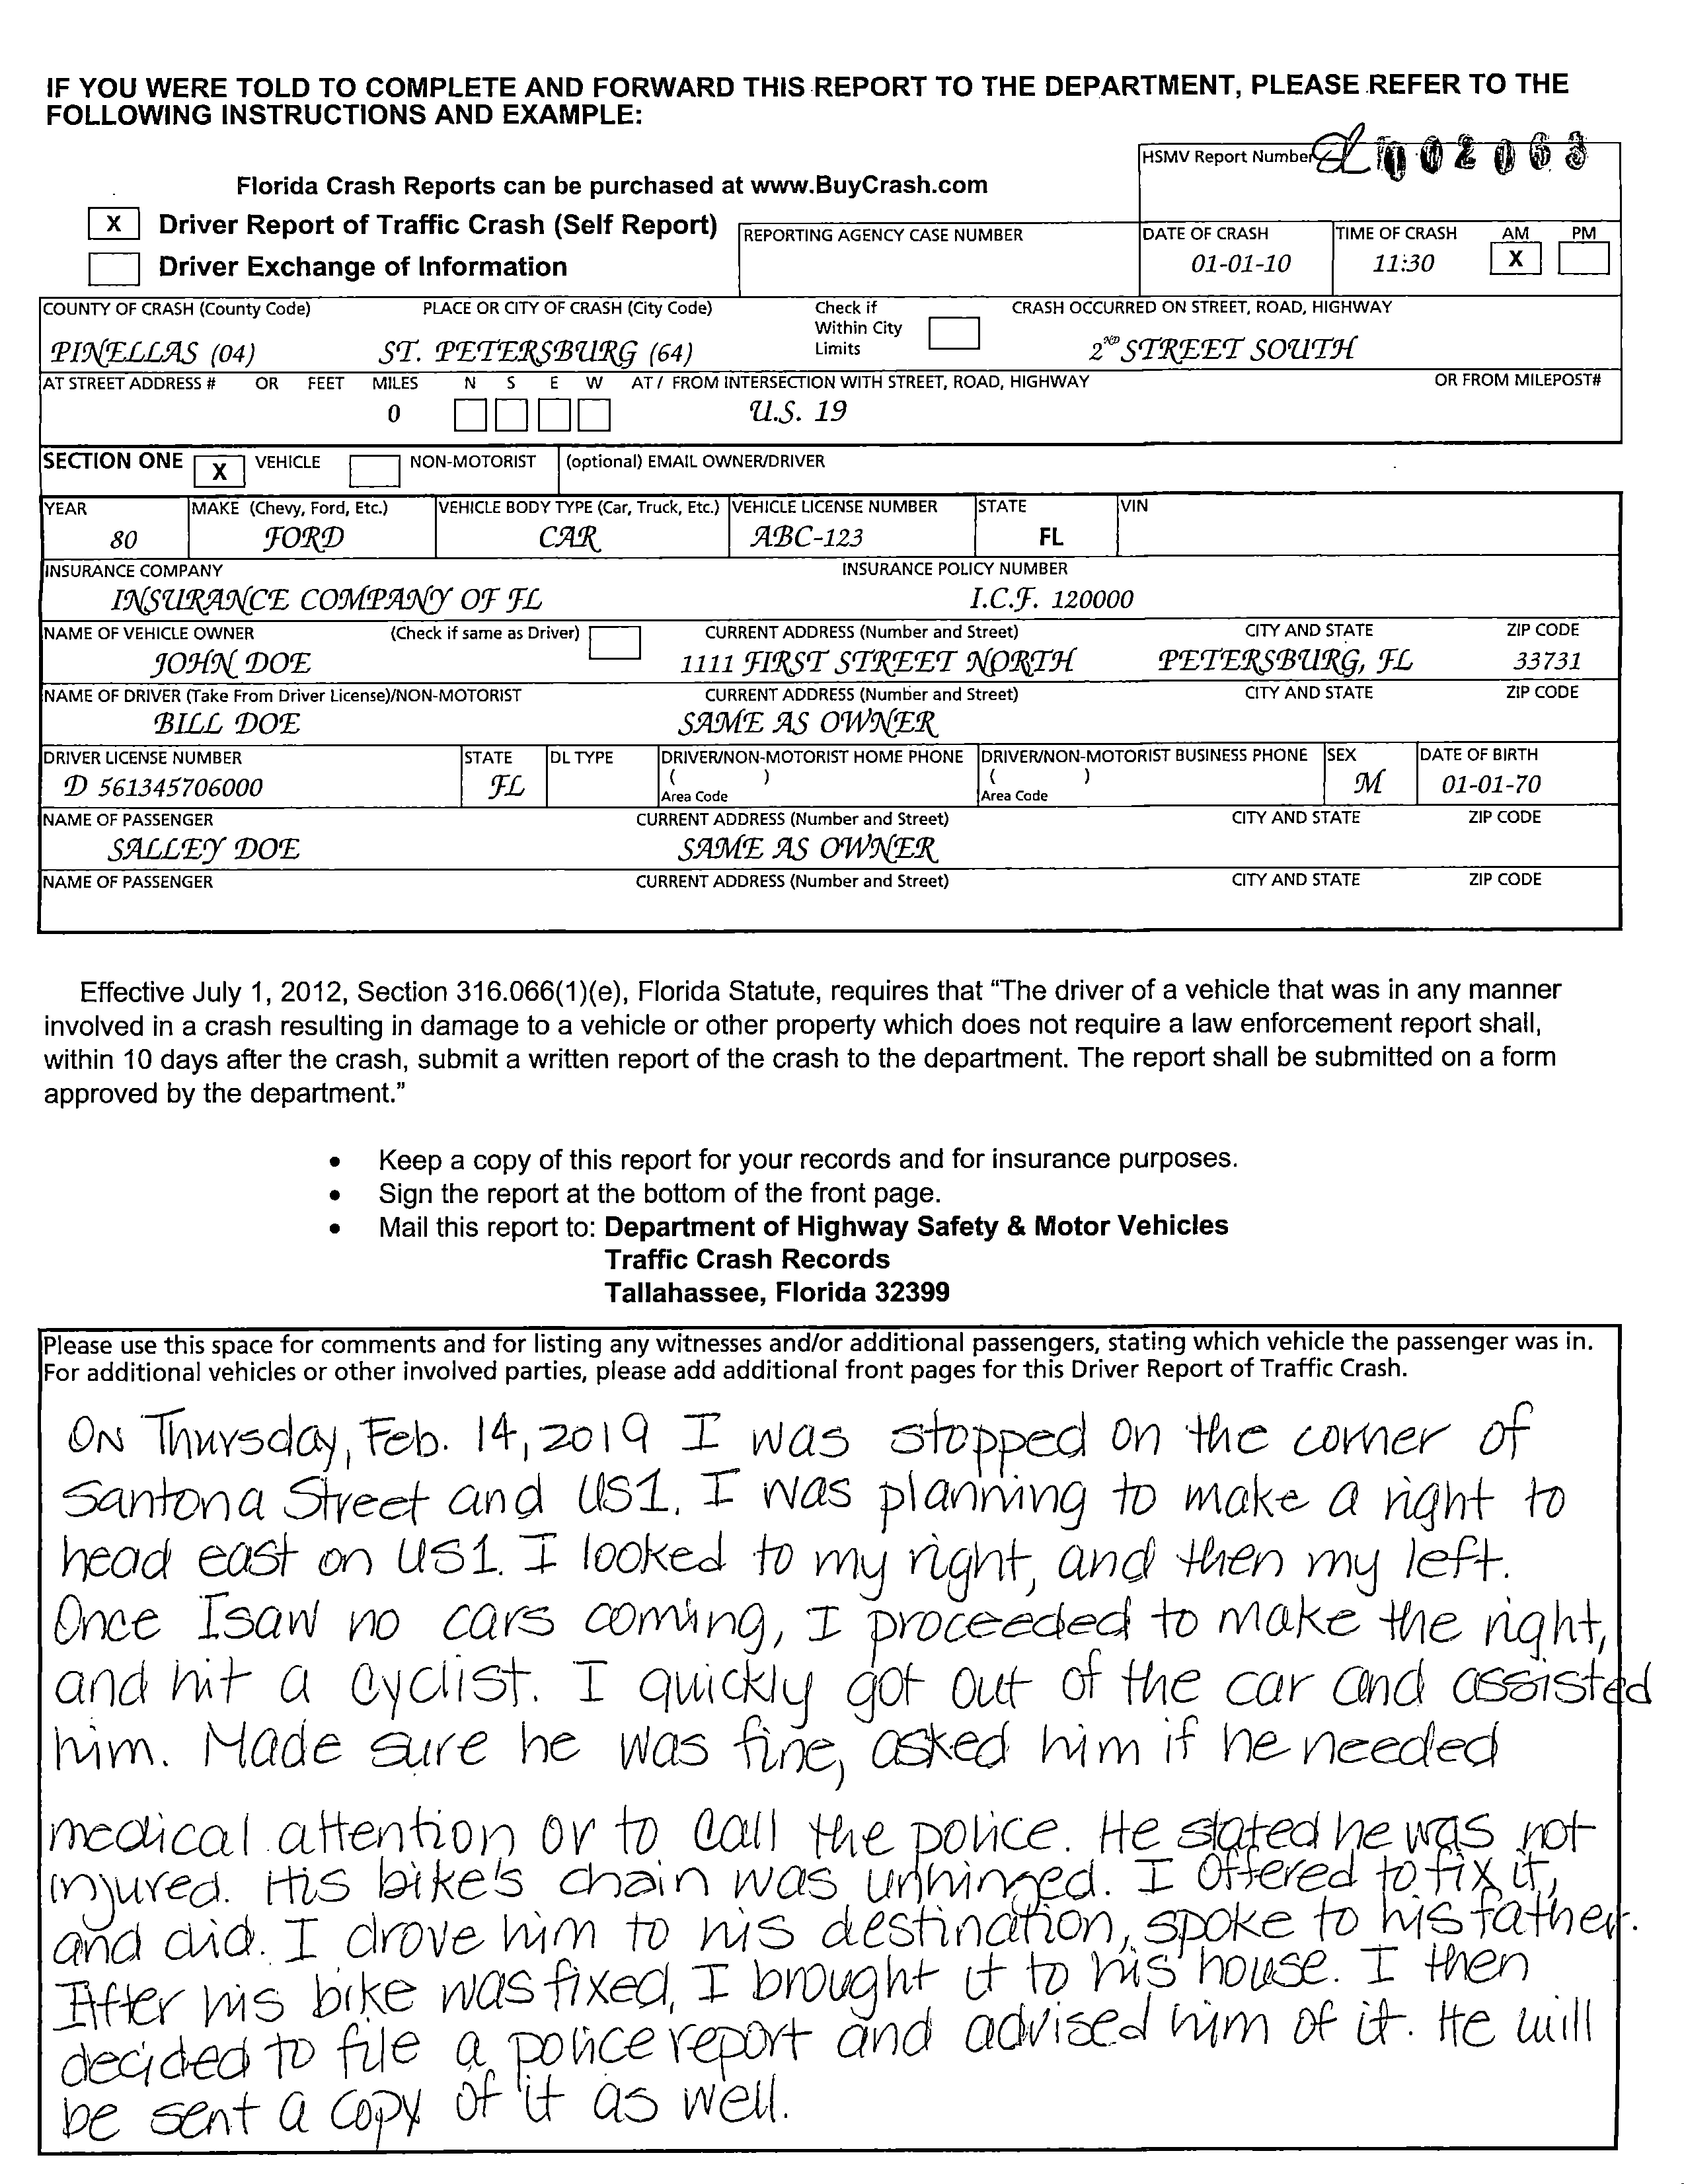 IF YOU WERE TOLD TO COMPLETE AND FORWARD THIS REPORT TO THE DEPARTMENT, PLEASE REFER TO THE
FOLLOWING INSTRUCTIONS AND EXAMPLE:
HSMV Report Number 002063
Florida Crash Reports can be purchased at www.BuyCrash.com
X Driver Report of Traffic Crash (Self Report)
Driver Exchange of Information
REPORTING AGENCY CASE NUMBER
DATE OF CRASH TIME OF CRASH AM PM
01-01-10 11:30 X
COUNTY OF CRASH (County Code) PLACE OR CITY OF CRASH (City Code) Check if Within City Limits CRASH OCCURRED ON STREET, ROAD, HIGHWAY
PINELLAS (04) ST. PETERSBURG (64) 2ND STREET SOUTH
AT STREET ADDRESS # OR FEET MILES N S E W AT / FROM INTERSECTION WITH STREET, ROAD, HIGHWAY OR FROM MILEPOST#
0 U.S. 19
SECTION ONE X VEHICLE NON-MOTORIST (optional) EMAIL OWNER/DRIVER
YEAR MAKE (Chevy, Ford, Etc.) VEHICLE BODY TYPE (Car, Truck, Etc.) VEHICLE LICENSE NUMBER STATE VIN
80 FORD CAR ABC-123 FL
INSURANCE COMPANY INSURANCE POLICY NUMBER
INSURANCE COMPANY OF FL I.C.F. 120000
NAME OF VEHICLE OWNER (Check if same as Driver) CURRENT ADDRESS (Number and Street) CITY AND STATE ZIP CODE
JOHN DOE 1111 FIRST STREET NORTH PETERSBURG, FL 33731
NAME OF DRIVER (Take From Driver License)/NON-MOTORIST CURRENT ADDRESS (Number and Street) CITY AND STATE ZIP CODE
BILL DOE SAME AS OWNER
DRIVER LICENSE NUMBER STATE DL TYPE DRIVER/NON-MOTORIST HOME PHONE DRIVER/NON-MOTORIST BUSINESS PHONE SEX DATE OF BIRTH
D 561345706000 FL ( ) ( ) M 01-01-70
Area Code Area Code
NAME OF PASSENGER CURRENT ADDRESS (Number and Street) CITY AND STATE ZIP CODE
SALLEY DOE SAME AS OWNER
NAME OF PASSENGER CURRENT ADDRESS (Number and Street) CITY AND STATE ZIP CODE
Effective July 1, 2012, Section 316.066(1)(e), Florida Statute, requires that “The driver of a vehicle that was in any manner
involved in a crash resulting in damage to a vehicle or other property which does not require a law enforcement report shall,
within 10 days after the crash, submit a written report of the crash to the department. The report shall be submitted on a form
approved by the department.”
• Keep a copy of this report for your records and for insurance purposes.
• Sign the report at the bottom of the front page.
• Mail this report to: Department of Highway Safety & Motor Vehicles
Traffic Crash Records
Tallahassee, Florida 32399
Please use this space for comments and for listing any witnesses and/or additional passengers, stating which vehicle the passenger was in.
For additional vehicles or other involved parties, please add additional front pages for this Driver Report of Traffic Crash.
On Thursday, Feb. 14, 2019 I was stopped on the corner of
Santona Street and US1. I was planning to make a right to
head east on US1. I looked to my right, and then my left.
Once I saw no cars coming, I proceeded to make the right,
and hit a cyclist. I quickly got out of the car and assisted
him. Made sure he was fine, asked him if he needed
medical attention or to call the police. He stated he was not
injured. His bike's chain was unhinged. I offered to fix it,
and did. I drove him to his destination, spoke to his father.
After his bike was fixed, I brought it to his house. I then
decided to file a police report and advised him of it. He will
be sent a copy of it as well.